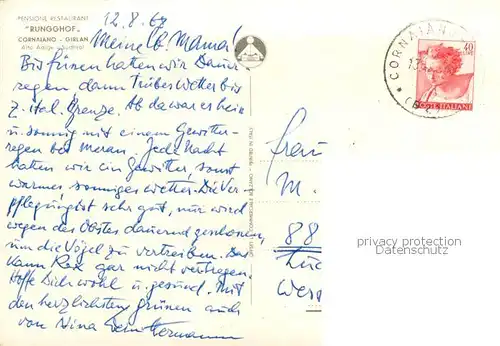 PENSIONE RESTAURANT
"RUNGGHOF"
CORNAIANO - GIRLAN
Alto Adige (Südtirol)
12.8.69
Meine lb. Mama!
Bis Füssen hatten wir Dauer
regen dann trübes Wetter bis
z. ital. Grenze. Ab da war es heiß
u. sonnig mit einem Gewitter-
regen bei Meran. Jede Nacht
hatten wir ein Gewitter, sonst
warmes, sonniges Wetter. Die Ver-
pflegung ist sehr gut, nur wird
wegen des Obstes dauernd geschossen,
um die Vögel zu vertreiben. Das
kann Rex gar nicht vertragen.
Hoffe Dich wohl u. gesund. Mit
den herzlichsten Grüßen auch
von Nina Dein Hermann
CORNAIANO
40
POSTE ITALIANE
Frau
M.
88
privacy protection
Datenschutz